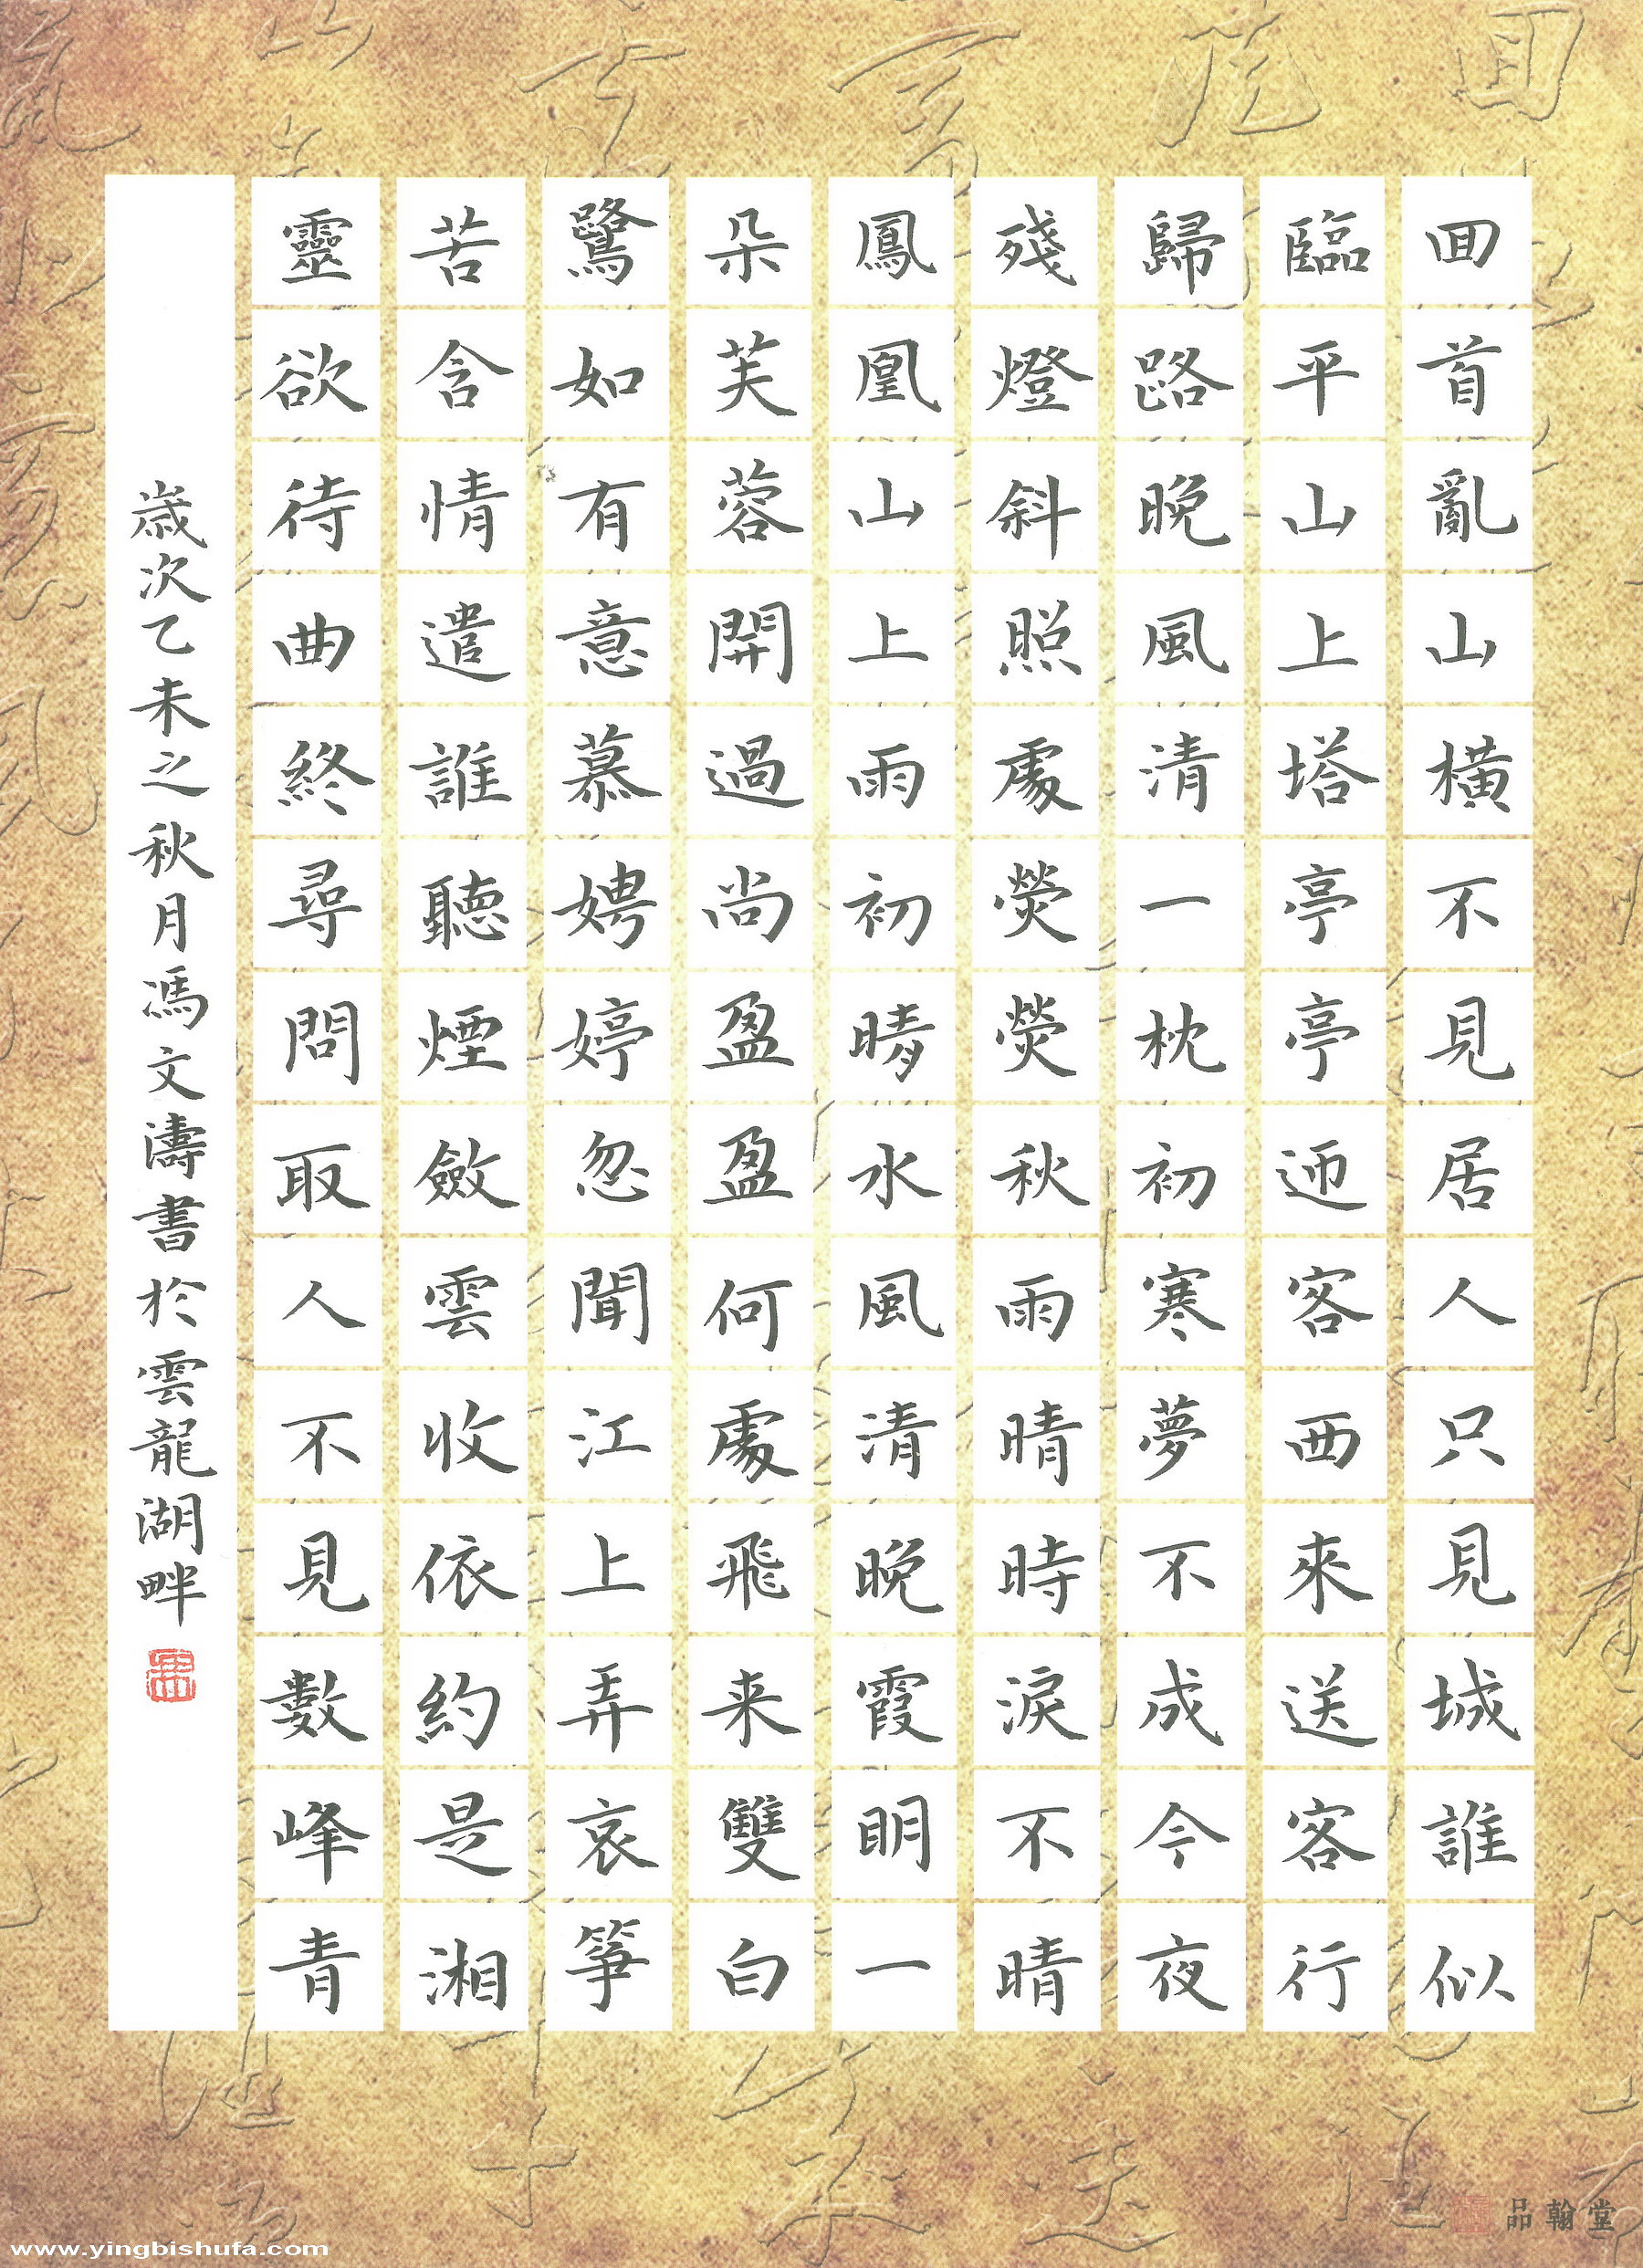 囬首亂山橫不見居人只見城誰似
臨平山上塔亭亭迎客西來送客行
歸路晚風清一枕初寒夢不成今夜
殘燈斜照處熒熒秋雨晴時淚不晴
鳳凰山上雨初晴水風清晚霞明一
朵芙蓉開過尚盈盈何處飛来雙白
鷺如有意慕娉婷忽聞江上弄哀箏
苦含情遣誰聽煙斂雲收依約是湘
靈欲待曲終尋問取人不見數峰青
歲次乙未之秋月馮文濤書於雲龍湖畔
品翰堂
www.yingbishufa.com